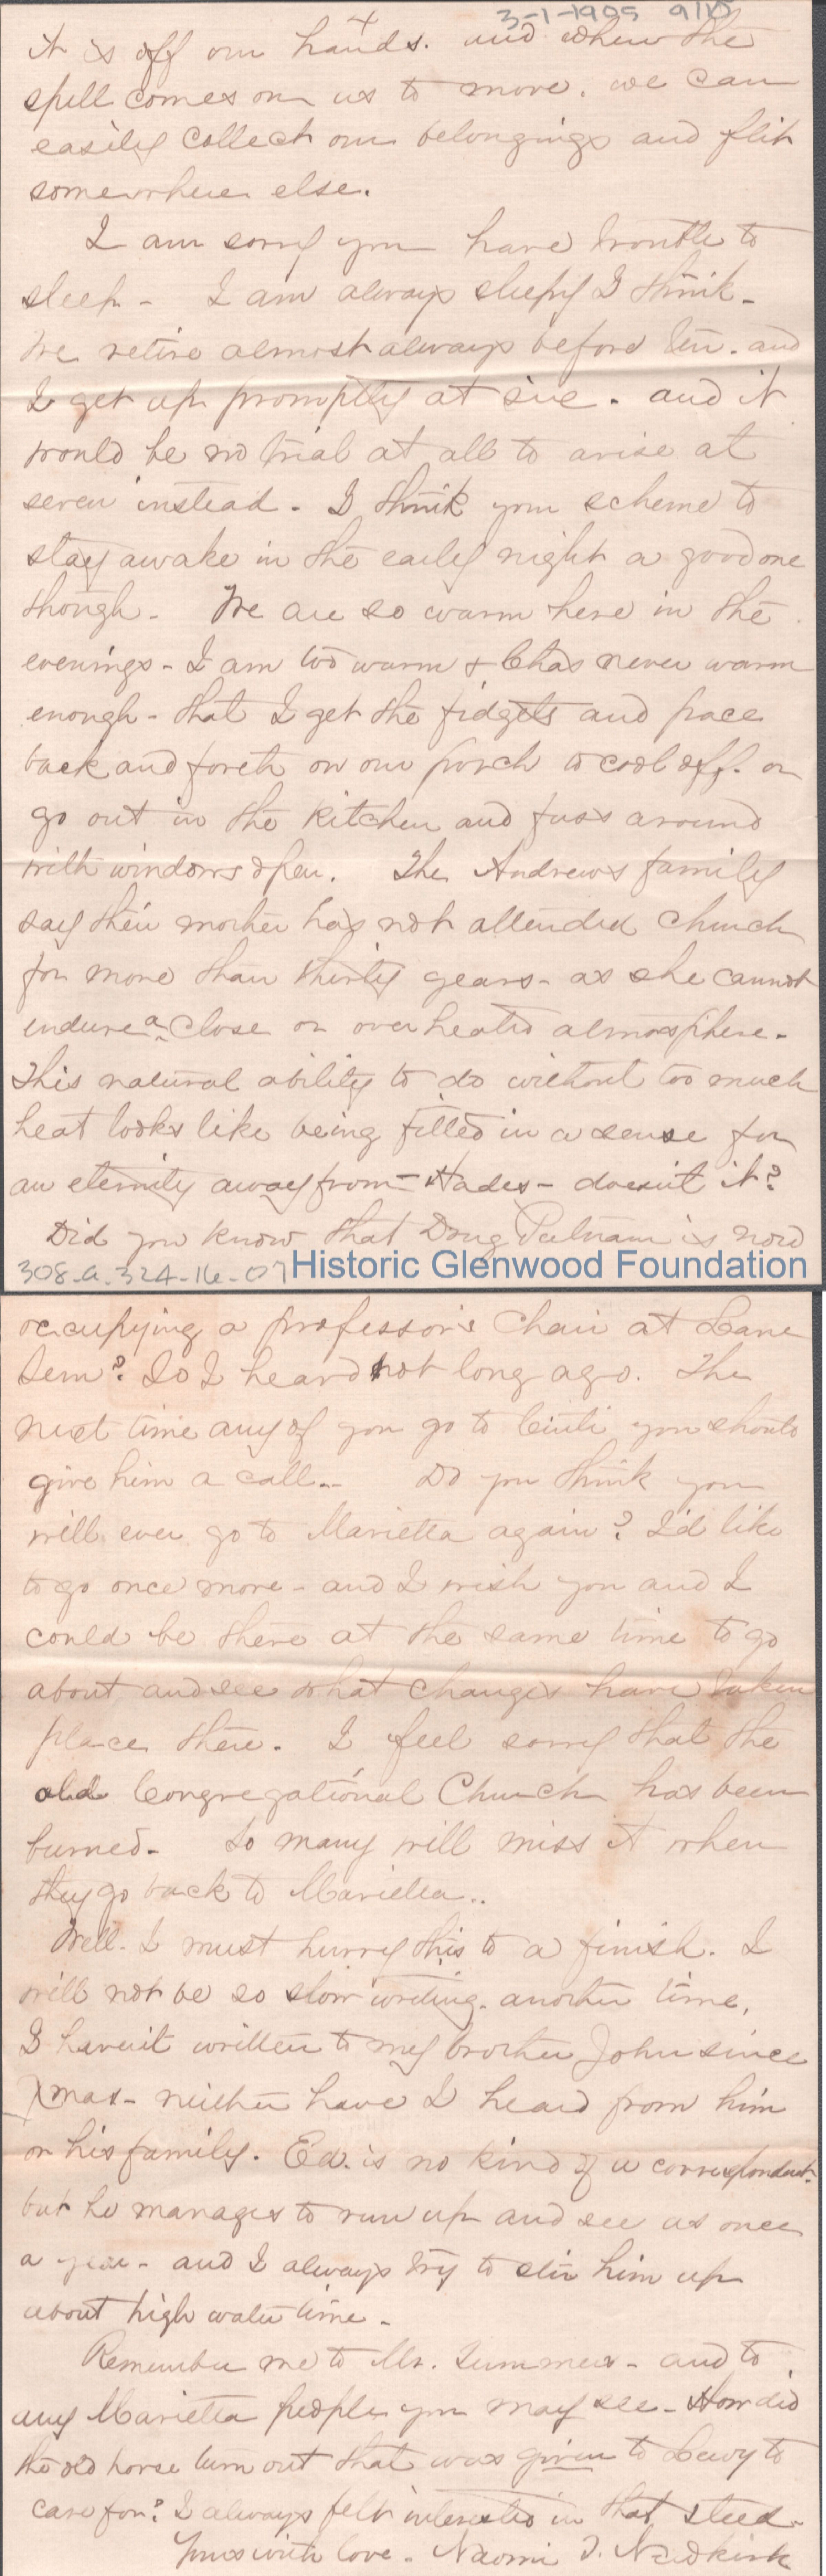 3-1-1905 9/10
it is off our hands. and when the
spell comes on us to move. we can
easily collect our belongings and flit
somewhere else.
I am sorry you have trouble to
sleep - I am always sleepy I think -
We retire almost always before ten. and
I get up promptly at six. and it
would be no trial at all to arise at
seven instead. I think your scheme to
stay awake in the early night a good one
though - We are so warm here in the
evenings - I am too warm & Chas never warm
enough - that I get the fidgets and pace
back and forth on our porch to cool off. or
go out in the kitchen and fuss around
with windows open. The Andrews family
say their mother has not attended church
for more than thirty years - as she cannot
endure a close or over heated atmosphere -
This natural ability to do without too much
heat looks like being fitted in a sense for
an eternity away from - Hades - doesn't it?
Did you know that Doug Putnam is now
308.a.324-16-07 Historic Glenwood Foundation
occupying a professor's Chair at Lane
Sem? So I heard not long ago. The
next time any of you go to Cinti you should
give him a call.. Do you think you
will ever go to Marietta again? I'd like
to go once more - and I wish you and I
could be there at the same time to go
about and see what changes have taken
place there. I feel sorry that the
old Congregational Church has been
burned - So many will miss it when
they go back to Marietta..
Well. I must hurry this to a finish. I
will not be so slow writing. another time.
I haven't written to my brother John since
Xmas - neither have I heard from him
or his family. Ed. is no kind of a correspondent.
but he manages to run up and see us once
a year - and I always try to stir him up
about high water time -
Remember me to Mr. Summers - and to
any Marietta people you may see - How did
the old horse turn out that was given to Lewy to
care for? I always felt interested in that steed -
Yours with love - Naomi